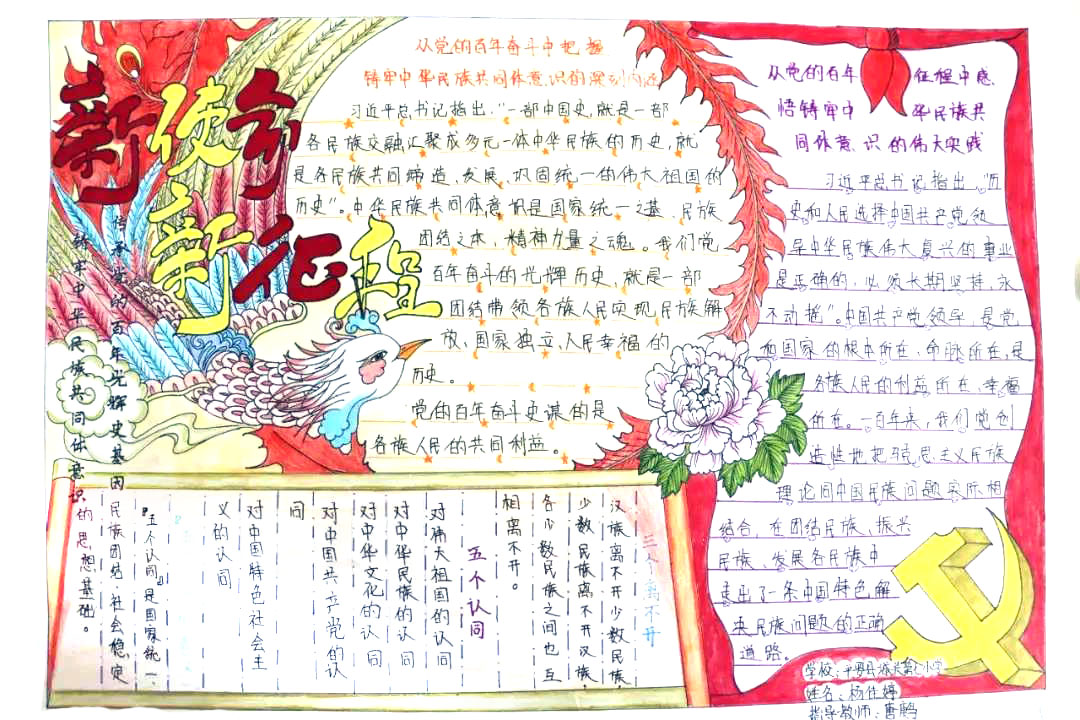 新使命
新征程
传承党的百年光辉史基因
铸牢中华民族共同体意识的思想基础。
从党的百年奋斗中把握
铸牢中华民族共同体意识的深刻内涵
习近平总书记指出:"一部中国史,就是一部
各民族交融汇聚成多元一体中华民族的历史,就
是各民族共同缔造、发展、巩固统一的伟大祖国的
历史"。中华民族共同体意识是国家统一之基、民族
团结之本、精神力量之魂。我们党
百年奋斗的光辉历史,就是一部
团结带领各族人民实现民族解
放、国家独立、人民幸福的
历史。
党的百年奋斗史谋的是
各族人民的共同利益。
从党的百年征程中感
悟铸牢中华民族共
同体意识的伟大实践
习近平总书记指出,"历
史和人民选择中国共产党领
导中华民族伟大复兴的事业
是正确的,必须长期坚持,永
不动摇"。中国共产党领导,是党
和国家的根本所在、命脉所在,是
各族人民的利益所在、幸福
所在。一百年来,我们党创
造性地把马克思主义民族
理论同中国民族问题实际相
结合,在团结民族、振兴
民族、发展各民族中
走出了一条中国特色解
决民族问题的正确
道路。
三个离不开
汉族离不开少数民族,
少数民族离不开汉族,
各少数民族之间也互
相离不开。
五个认同
对伟大祖国的认同
对中华民族的认同
对中华文化的认同
对中国共产党的认
同
对中国特色社会主
义的认同
『五个认同』是国家统一、
民族团结、社会稳定
学校:平罗县城关第小学
姓名:杨佳婷
指导教师:唐鹏